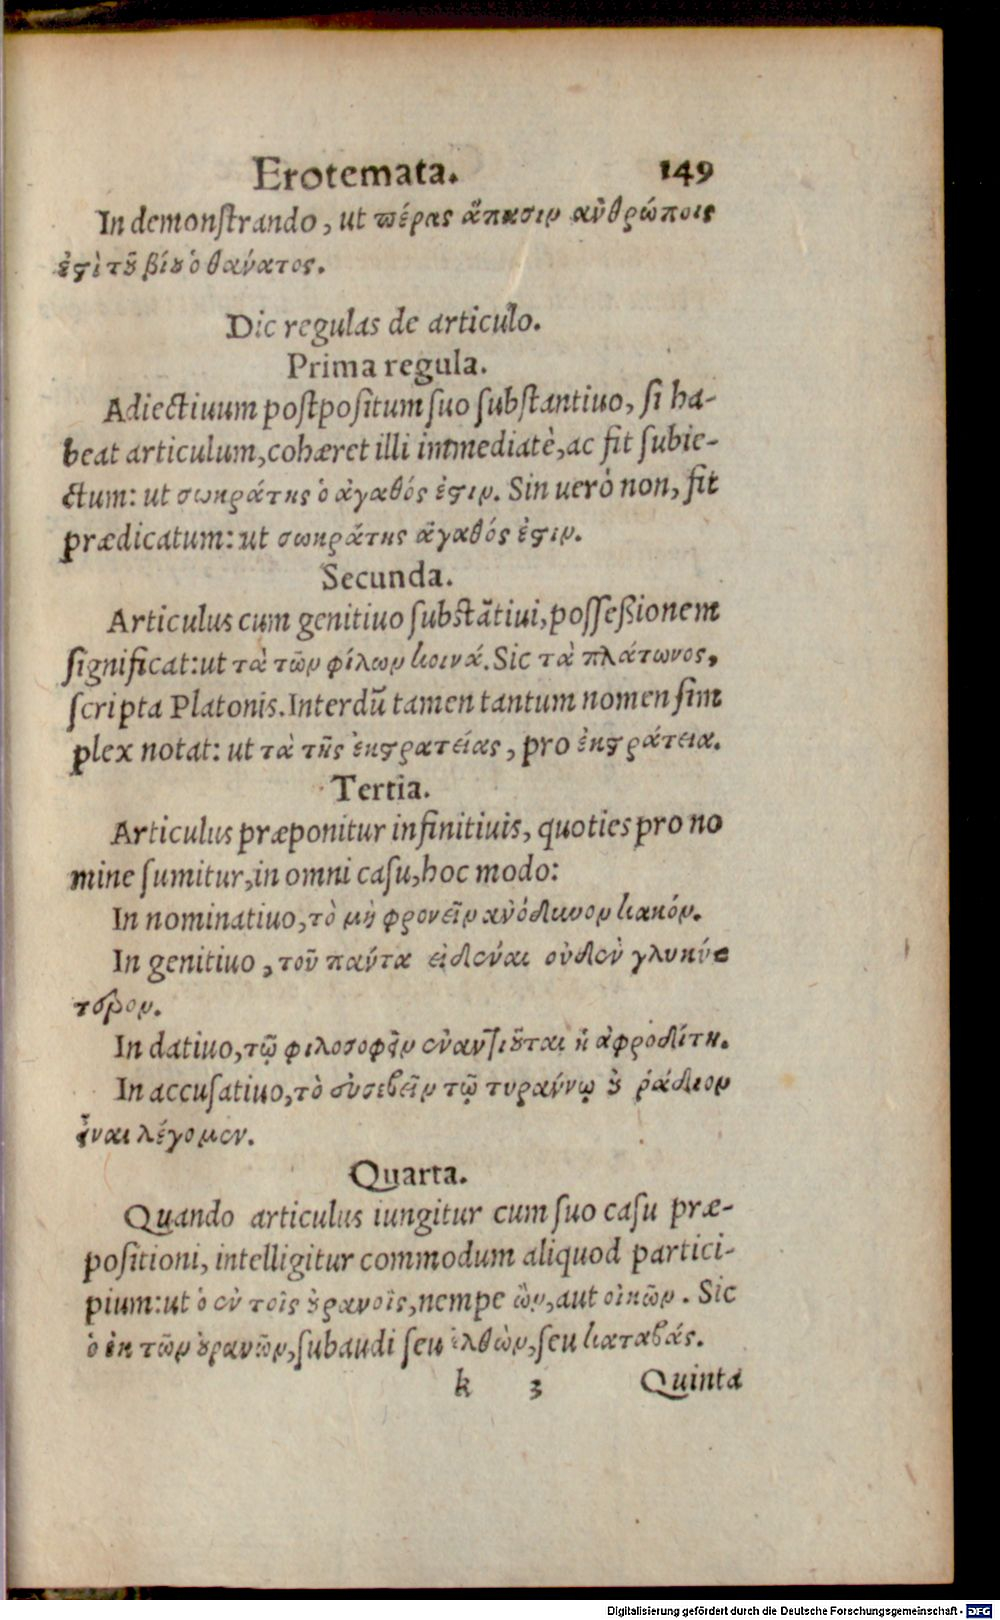 Erotemata. 149
In demonſtrando, ut πέρας ἅπασιν ἀνθρώποις
ἐϛὶ τȣ͂ βίȣ ὁ θάνατος.
Dic regulas de articulo.
Prima regula.
Adiectiuum poſtpoſitum ſuo ſubſtantiuo, ſi ha-
beat articulum, cohæret illi immediatè, ac fit ſubie-
ctum: ut σωκράτης ὁ ἀγαθός ἐϛιν. Sin uerò non, fit
prædicatum: ut σωκράτης ἀγαθός ἐϛιν.
Secunda.
Articulus cum genitiuo ſubſtãtiui, poſſeßionem
ſignificat: ut τὰ τῶν φίλων κοινά. Sic τὰ πλάτωνος,
ſcripta Platonis. Interdũ tamen tantum nomen ſim
plex notat: ut τὰ τῆς ἐκϛρατείας, pro ἐκϛράτεια.
Tertia.
Articulus præponitur infinitiuis, quoties pro no
mine ſumitur, in omni caſu, hoc modo:
In nominatiuo, τὸ μὴ φρονεῖν ἀνόδιυνον κακόν.
In genitiuo, τοῦ πάντα εἰδέναι οὐδὲν γλυκύ
τερον.
In datiuo, τῷ φιλοσοφεῖν ἐναντιȣ͂ται ἡ ἀφροδίτη.
In accuſatiuo, τὸ ἐυσεβεῖν τῷ τυράννῳ ȣ̓ ῥάδιον
εἶναι λέγομεν.
Quarta.
Quando articulus iungitur cum ſuo caſu præ-
poſitioni, intelligitur commodum aliquod partici-
pium: ut ὁ ἐν τοῖς ȣ̓ρανοῖς, nempe ὢν, aut οἰκῶν. Sic
ὁ ἐκ τῶν ȣ̓ρανῶν, ſubaudi ſeu ἐλθὼν, ſeu καταβάς.
k 3 Quinta
Digitalisierung gefördert durch die Deutsche Forschungsgemeinschaft - DFG